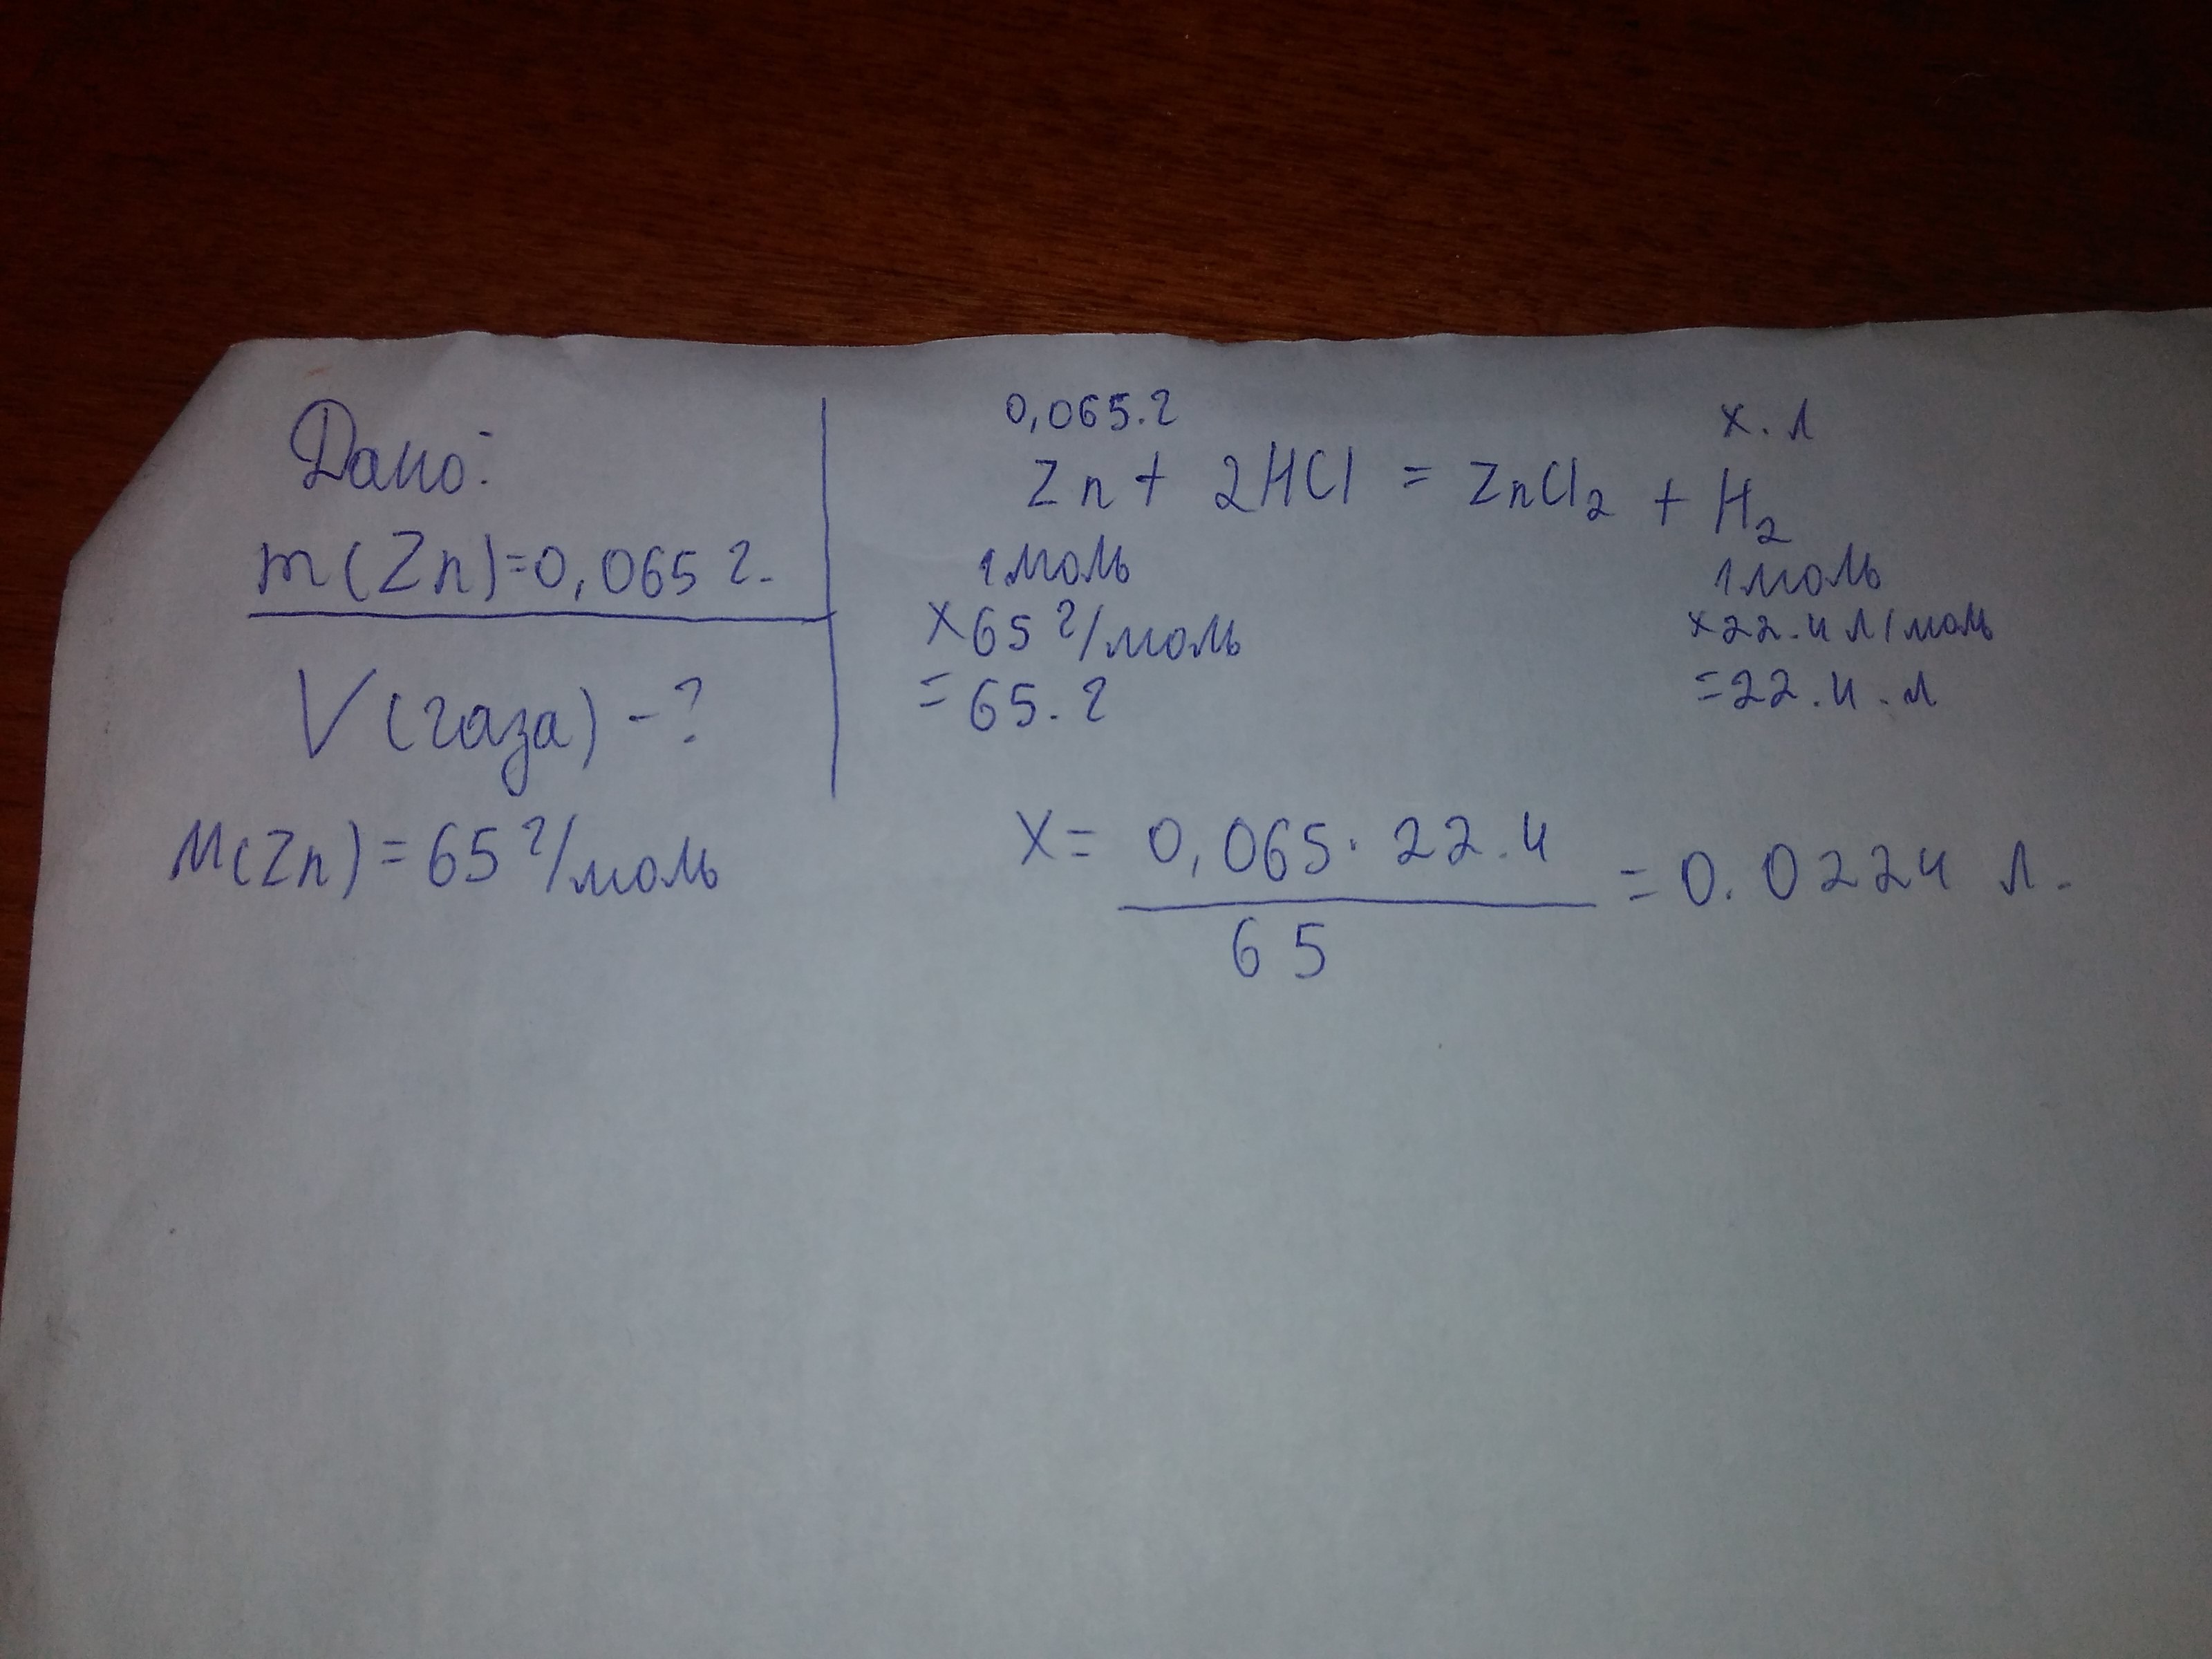 Дано:
m(Zn)=0,065 г.
V(газа) -?
M(Zn) = 65 г/моль
0,065.г
x. л
Zn + 2HCl = ZnCl₂ + H₂
1 моль
1 моль
x 65 г/моль
x 22.4 л/моль
= 65. г
= 22.4. л
X = 0,065 · 22.4 = 0.0224 л.
65